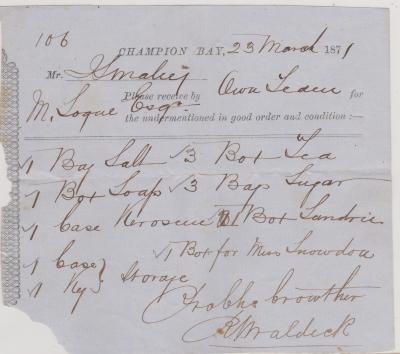 106
CHAMPION BAY, 23 March 1871
Mr. Smaley
Please receive by Own Team for
M. Logue Esqr.
the undermentioned in good order and condition :—
1 Bag Salt 3 Box Tea
1 Box Soap 3 Bags Sugar
1 Case Kerosene 1 Box Sundries
1 Box for Miss Snowdon
1 Case
1 Kg Storage
Crowther